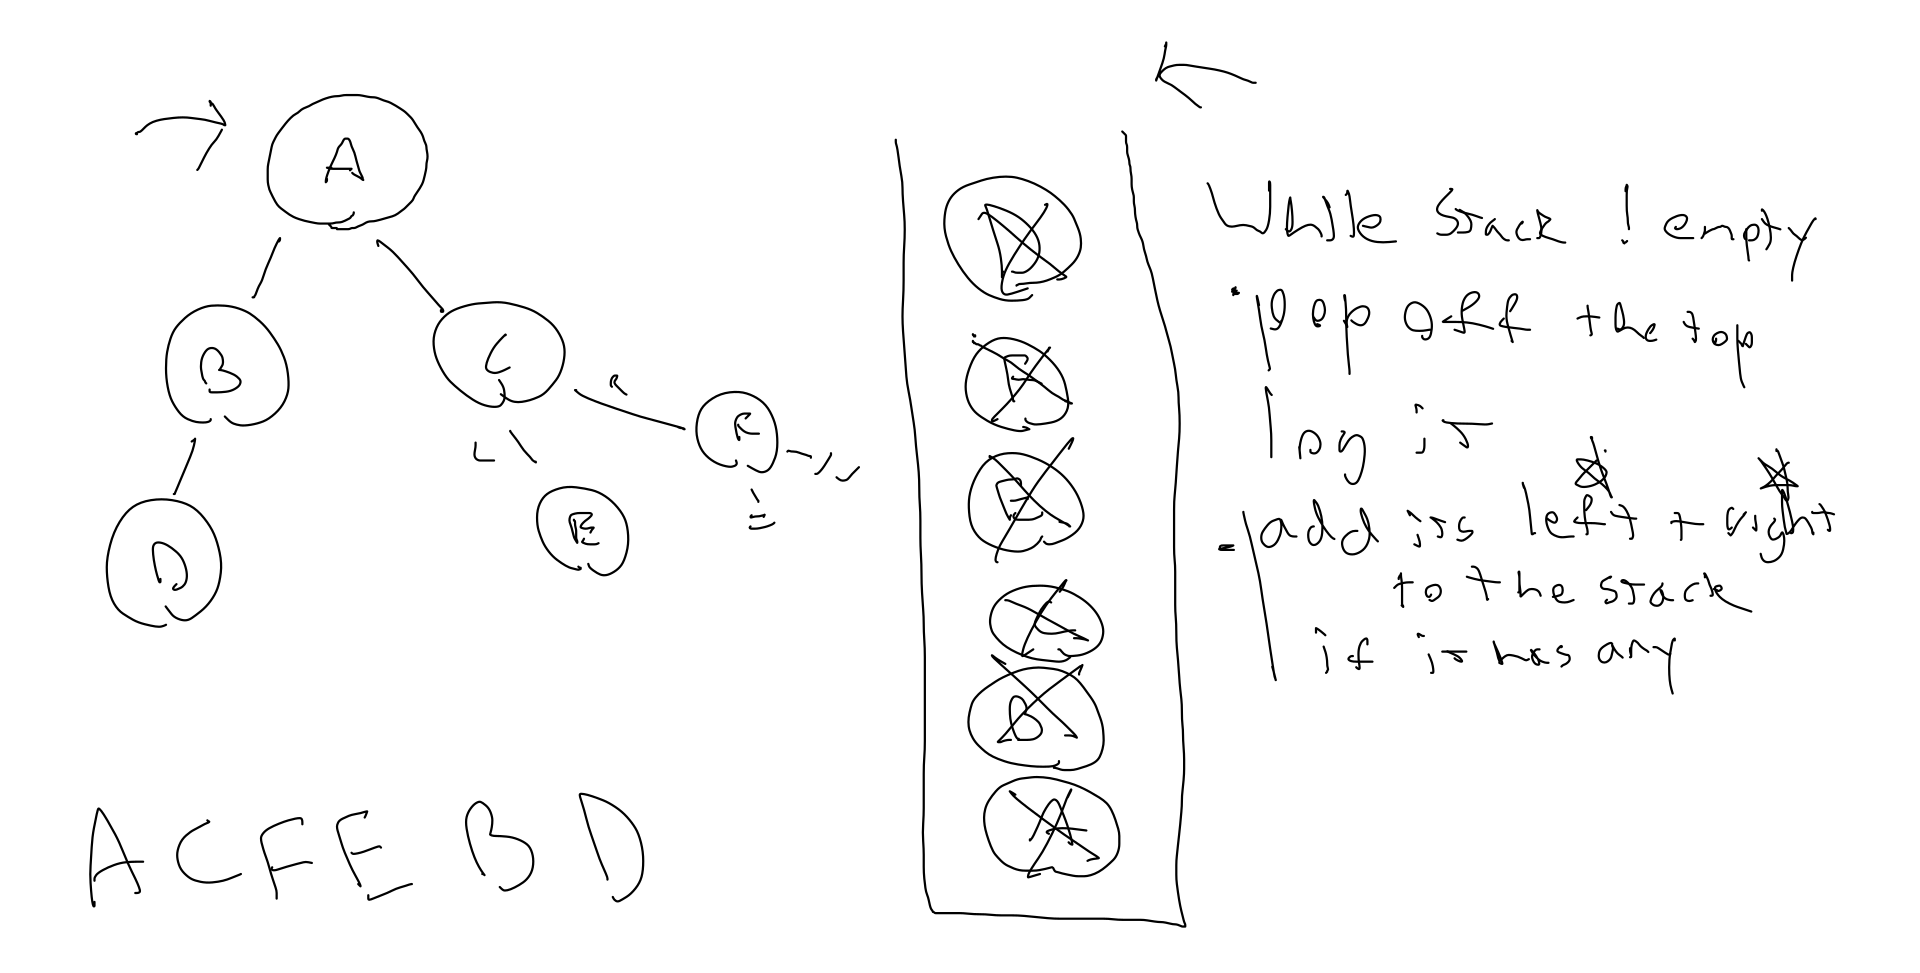 A
B
C
R
F
L
E
D
D
F
E
C
B
A
While stack ! empty
pop off the top
log it
add its left + right
to the stack
if it has any
A C F E B D